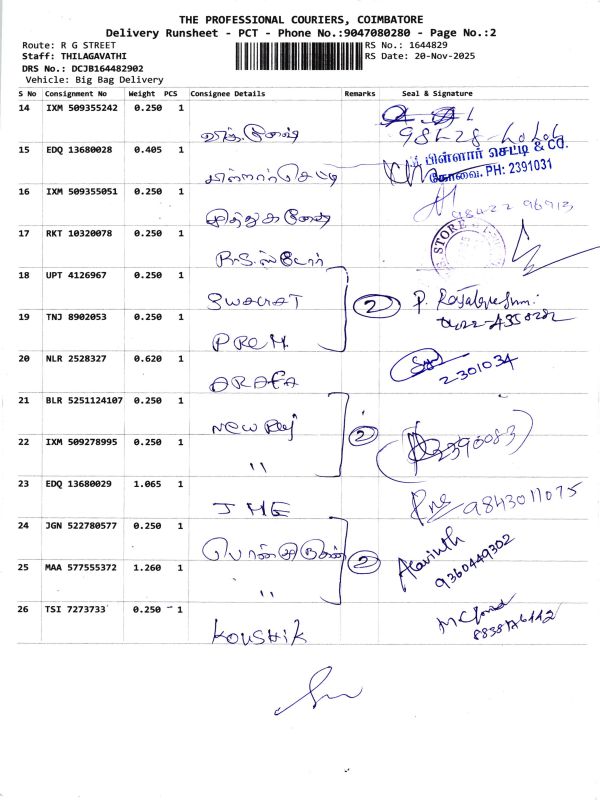 THE PROFESSIONAL COURIERS, COIMBATORE
Delivery Runsheet - PCT - Phone No.:9047080280 - Page No.:2
Route: R G STREET
RS No.: 1644829
Staff: THILAGAVATHI
RS Date: 20-Nov-2025
DRS No.: DCJB164482902
Vehicle: Big Bag Delivery
S No Consignment No Weight PCS Consignee Details Remarks Seal & Signature
14 IXM 509355242 0.250 1
15 EDQ 13680028 0.405 1
பிள்ளார் செட்டி & CO.
கோவை. PH: 2391031
பிள்ளார் செட்டி
16 IXM 509355051 0.250 1
முத்து கணேஷ்
17 RKT 10320078 0.250 1
STORE
R.S. ஸ்டோர்
18 UPT 4126967 0.250 1
2
19 TNJ 8902053 0.250 1
PREM
20 NLR 2528327 0.620 1
2301034
ARAFA
21 BLR 5251124107 0.250 1
New Raj
2
2390083
22 IXM 509278995 0.250 1
"
23 EDQ 13680029 1.065 1
9843011075
JME
24 JGN 522780577 0.250 1
Aravinth
9360449302
2
25 MAA 577555372 1.260 1
"
26 TSI 7273733 0.250 1
KOUSHIK